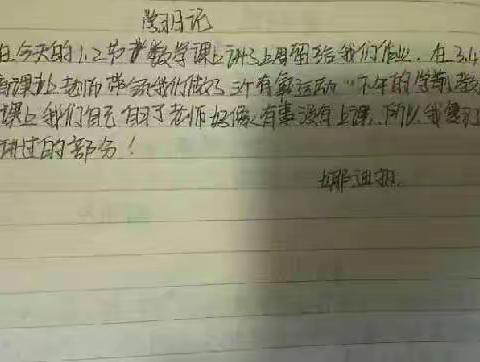 学习日记
在今天的1.2节数学课上讲上周留给我们作业. 在3.4
育课上老师带领我们做了有氧运动"下午的学前教
课上我们自习老师好像有事没有上课.所以我复习
讲过的部分!
耶迪